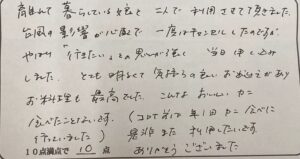 離れて暮らしている娘と二人で利用させて頂きました。
台風の影響が心配で一度はキャンセルしたのですが
やはり「行きたい」との思いが強く当日申し込み
しました。とても明るくて気持ちの良いお迎えがあり
お料理も最高でした。こんなおいしいカニ
食べたことないです。(コロナ前は年1回カニ食べに
行っていました)是非また利用したいです。
10点満点で10点 ありがとうございました